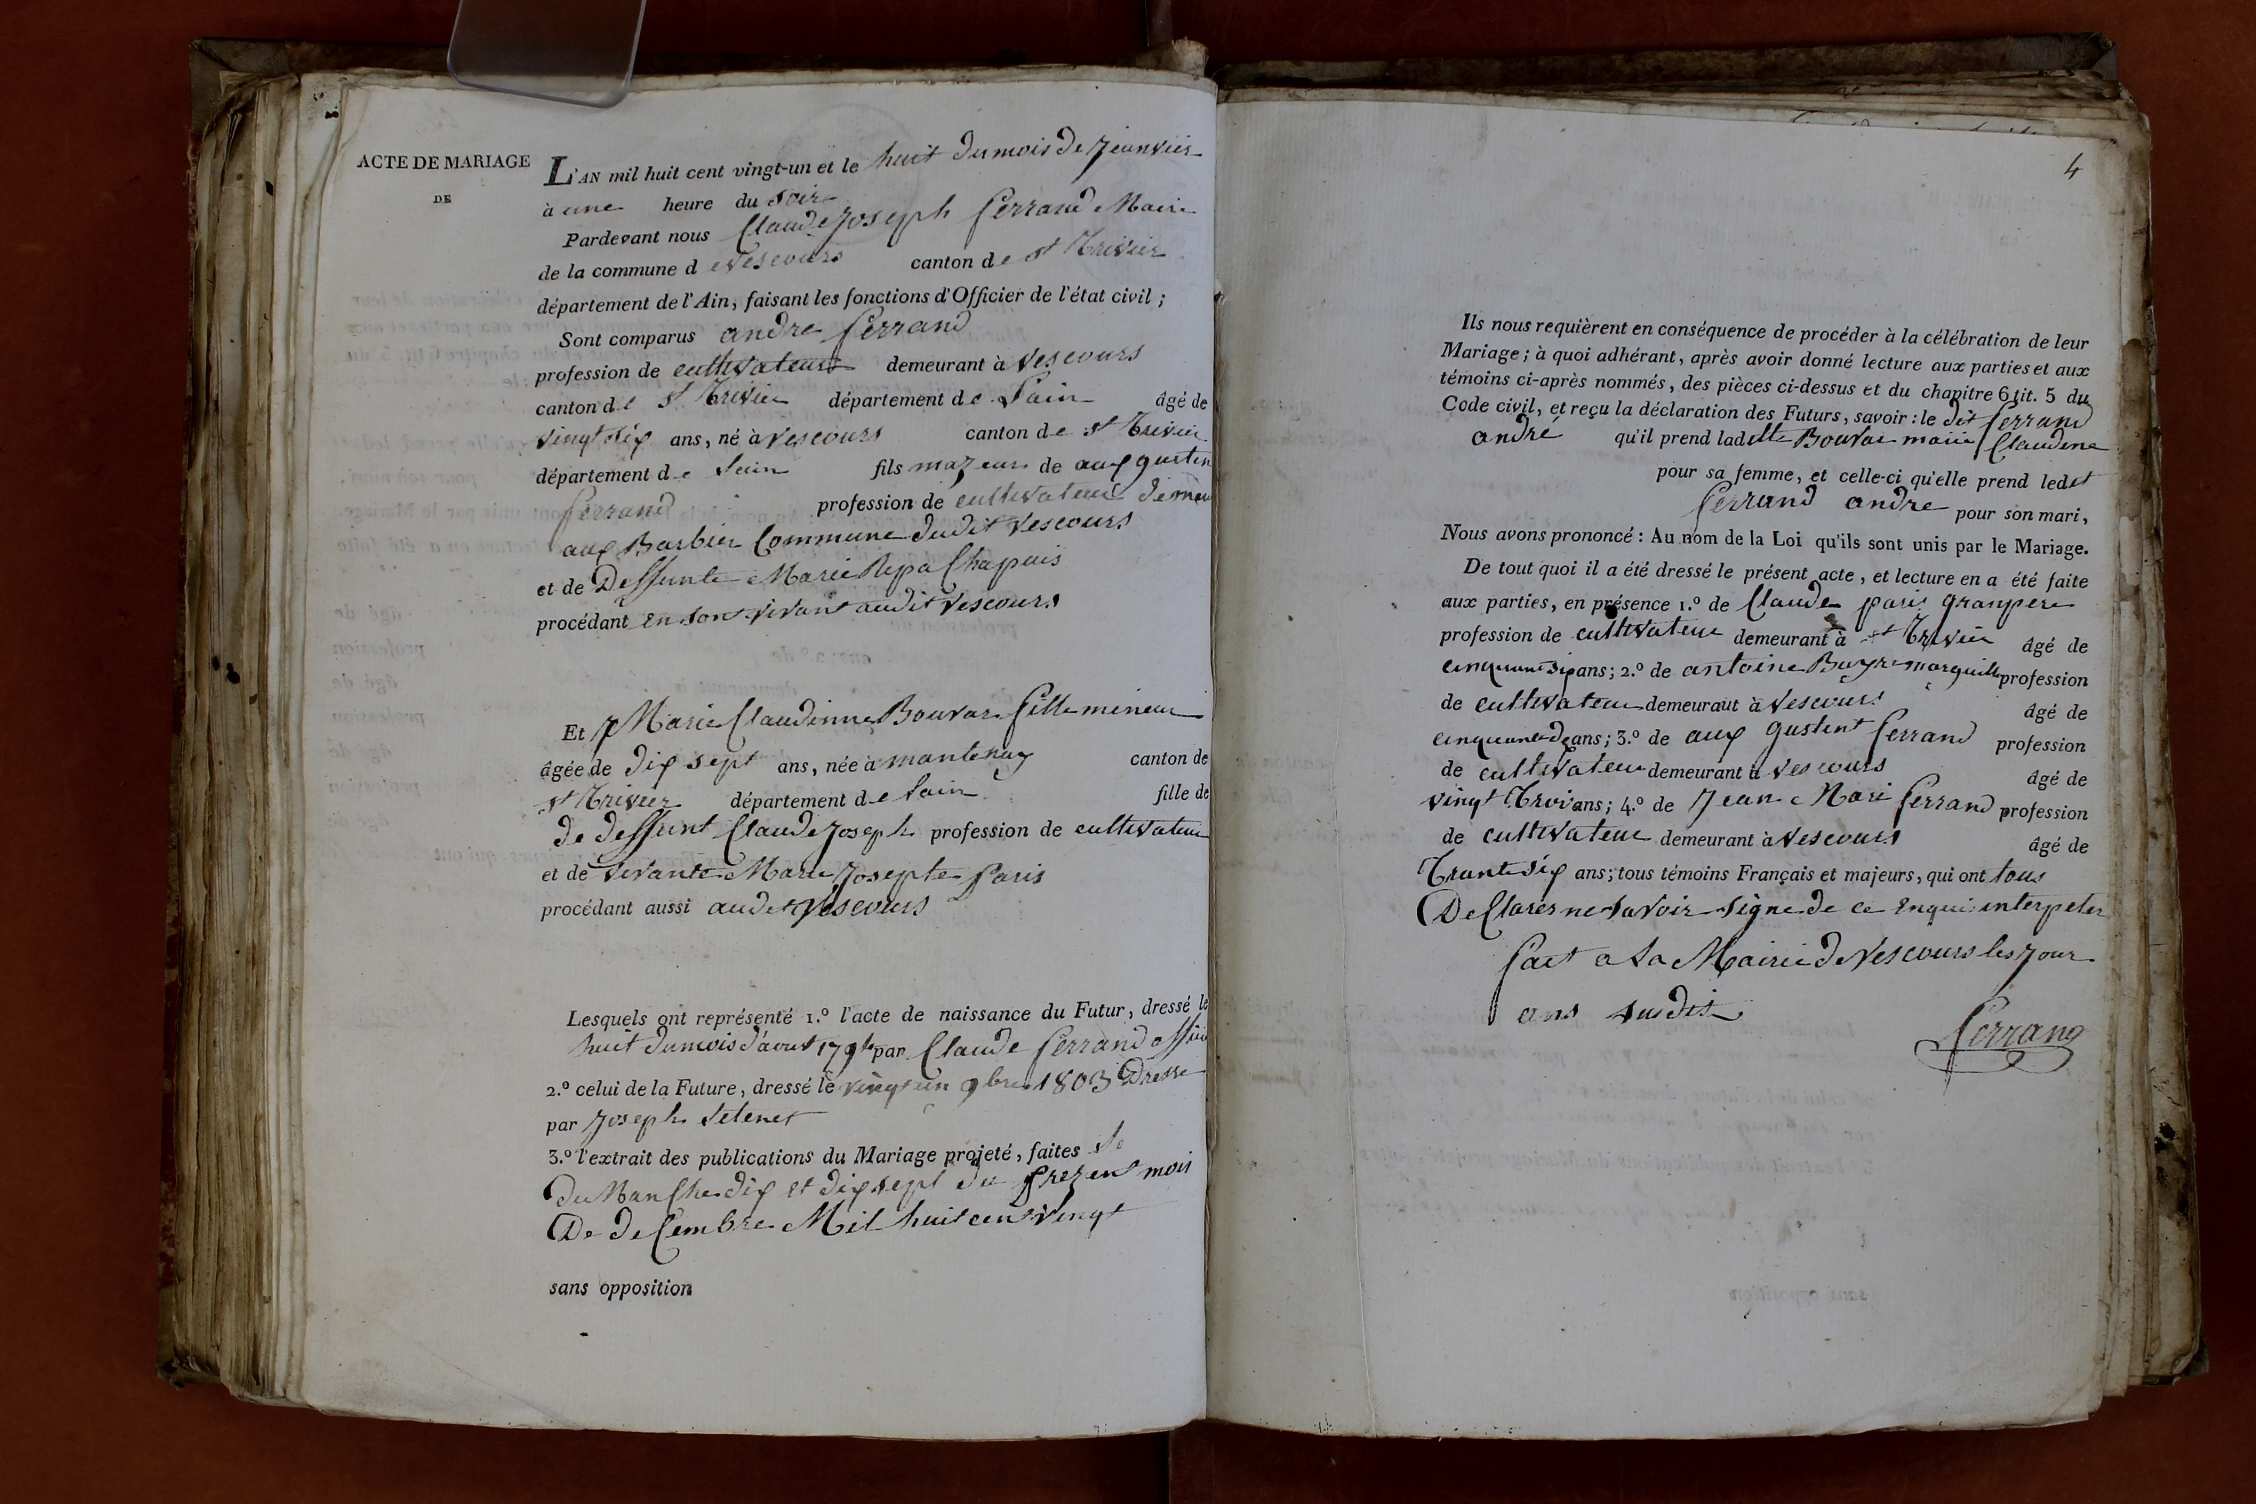 ACTE DE MARIAGE
DE
L'AN mil huit cent vingt-un et le huit du mois de Jeanvier
à une heure du soir
Pardevant nous Claude Joseph ferrand Maire
de la commune de Vescours canton de st Trivier
département de l'Ain, faisant les fonctions d'Officier de l'état civil ;
Sont comparus andre ferrand
profession de cultivateur demeurant à Vescours
canton de st Trivier département de Lain âgé de
vingt six ans, né à Vescours canton de st Trivier
département de Lain fils majeur de aux gustin
ferrand profession de cultivateur demeu
aux Barbier Commune dudit Vescours
et de Deffunte Marie Chapuis
procédant en son vivant audit Vescours
Et Marie Claudinne Bouvar fille mineur
âgée de dix sept ans, née à mantenay canton de
st Trivier département de Lain fille de
de deffunt Claude Joseph profession de cultivateur
et de vivante Marie Josepte paris
procédant aussi audit Vescours
Lesquels ont représenté 1.º l'acte de naissance du Futur, dressé le
huit du mois d'aout par Claude ferrand
2.º celui de la Future, dressé le vingt un 9bre 1803 Dresse
par Joseph
3.º l'extrait des publications du Mariage projeté, faites le
duManche dix et dix sept du prezent mois
De decembre Mil huit cent vingt
sans opposition
4
Ils nous requièrent en conséquence de procéder à la célébration de leur
Mariage ; à quoi adhérant, après avoir donné lecture aux parties et aux
témoins ci-après nommés, des pièces ci-dessus et du chapitre 6 tit. 5 du
Code civil, et reçu la déclaration des Futurs, savoir : le dit ferrand
andré qu'il prend ladette Bouvar marie Claudine
pour sa femme, et celle-ci qu'elle prend ledet
ferrand andre pour son mari,
Nous avons prononcé : Au nom de la Loi qu'ils sont unis par le Mariage.
De tout quoi il a été dressé le présent acte, et lecture en a été faite
aux parties, en présence 1.º de Claude paris granpere
profession de cultivateur demeurant à st Trivier âgé de
cinquante six ans ; 2.º de antoine profession
de cultivateur demeurant à Vescours âgé de
cinquante ans ; 3.º de aux gustint ferrand profession
de cultivateur demeurant à Vescours âgé de
vingt Trois ans ; 4.º de Jean Mari ferrand profession
de cultivateur demeurant à Vescours âgé de
Trante six ans ; tous témoins Français et majeurs, qui ont tous
DeClares ne savoir signe de ce Enquis interpeter
fait a la Mairie de Vescours les jour
ans susdit
ferrand